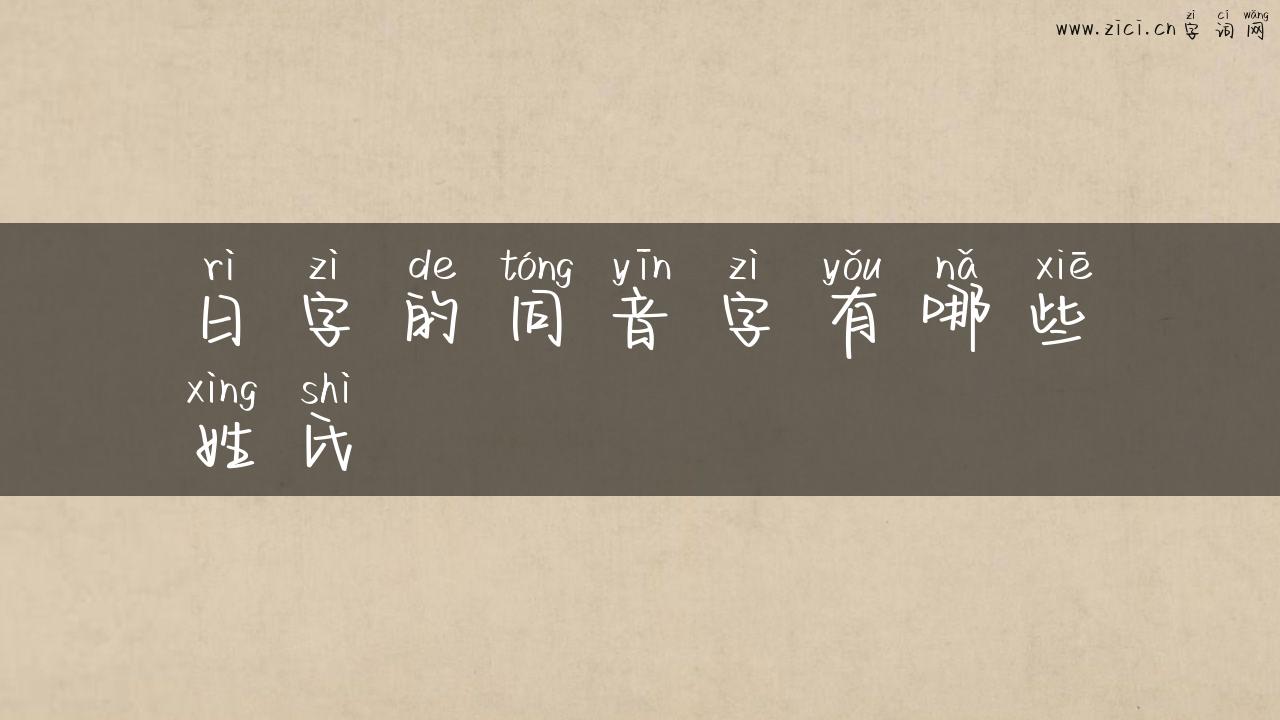 zì cí wǎng
www.zici.cn 字词网
rì zì de tóng yīn zì yǒu nǎ xiē
日字的同音字有哪些
xìng shì
姓氏